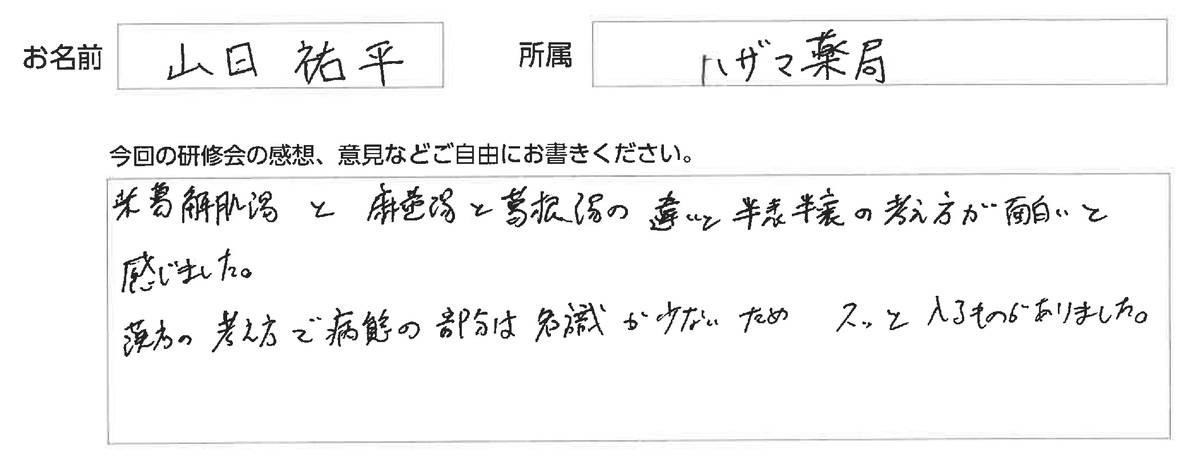 お名前 山日 祐平 所属 ハザマ薬局
今回の研修会の感想、意見などご自由にお書きください。
柴葛解肌湯 と 麻黄湯と葛根湯の 違いと 半表半裏の考え方が面白いと
感じました。
漢方の 考え方で病態の 部分は 知識 が 少ない ため スッと 入るものがありました。